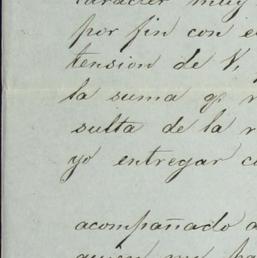 caracter muy
por fin con e
tension de V.
la suma q. r
sulta de la r
yo entregar c
acompañado a
quien me ha